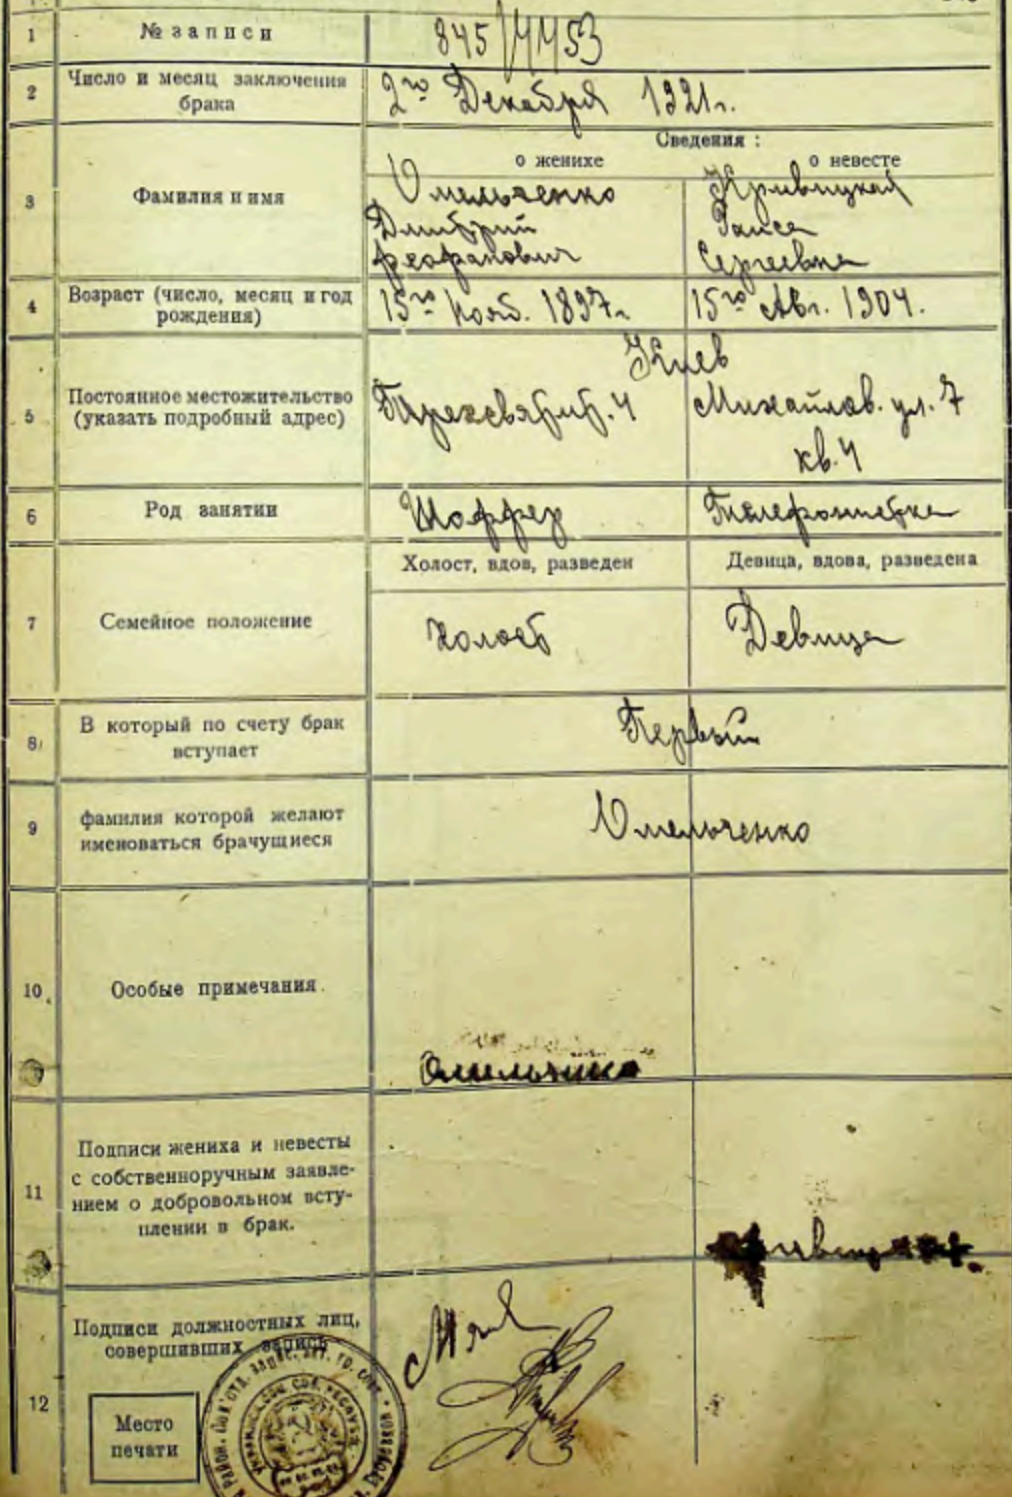 1 № записи 845/4453
2 Число и месяц заключения
брака
2го Декабря 1921г.
Сведения :
о женихе о невесте
3 Фамилия и имя
Омельченко Кривицкая
Дмитрий Раиса
Феофанович Сергеевна
4 Возраст (число, месяц и год
рождения)
15го Нояб. 1897г. 15го Авг. 1904.
Киев
5 Постоянное местожительство
(указать подробный адрес)
Трехсвятит. 4 Михайлов. ул. 7
кв. 4
6 Род занятии Шоффер Телефонистка
Холост, вдов, разведен Девица, вдова, разведена
7 Семейное положение Холост Девица
8 В который по счету брак
вступает
Первый
9 фамилия которой желают
именоваться брачущиеся
Омельченко
10 Особые примечания
11 Подписи жениха и невесты
с собственноручным заявле-
нием о добровольном всту-
плении в брак.
12 Подписи должностных лиц,
совершивших запись
Место
печати